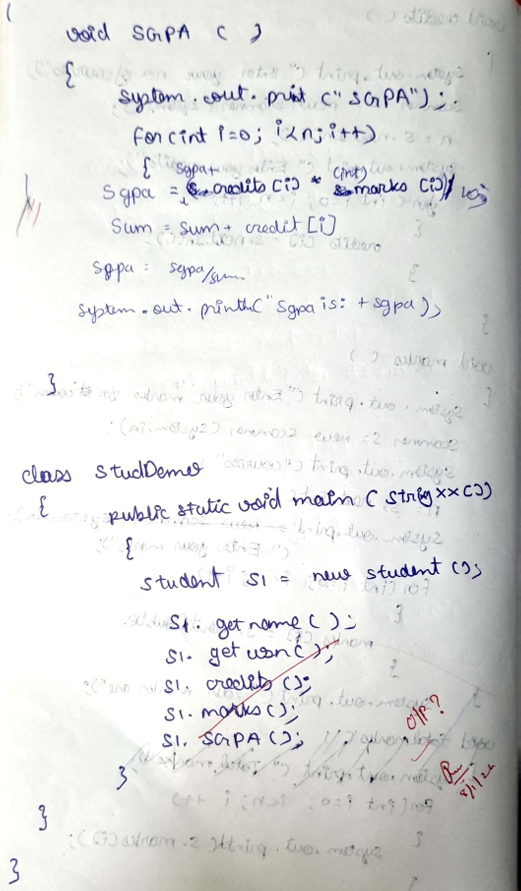 void SGPA ( )
{
system.out.print ("SGPA");
for(int i=0; i<n; i++)
{ sgpa+
Sgpa = credits [i] * (int) marks [i]/10;
Sum = sum + credit [i]
sgpa = sgpa/sum
system.out.println("Sgpa is: + sgpa);
}
class StudDemo
{ public static void main ( String xx[])
{
student S1 = new student ();
S1. get name ( );
S1. get usn( );
S1. credits ();
S1. marks ();
S1. SGPA ();
O/P?
}
}
}